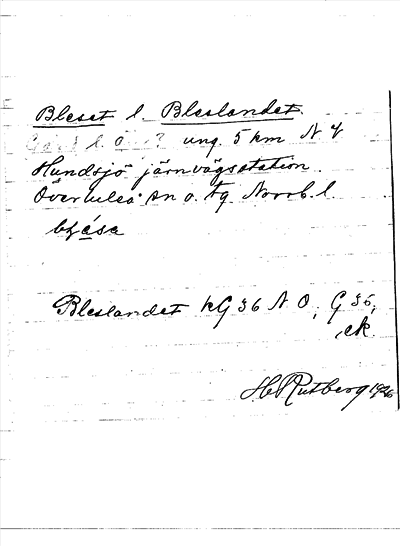 Bleset l. Bleslandet.
ung. 5 km N V
Hundsjö järnvägsstation.
Överluleå sn o. tg. Norrb. l.
Bleslandet kG 36 N O, G 36,
ek.
H Rutberg 1926